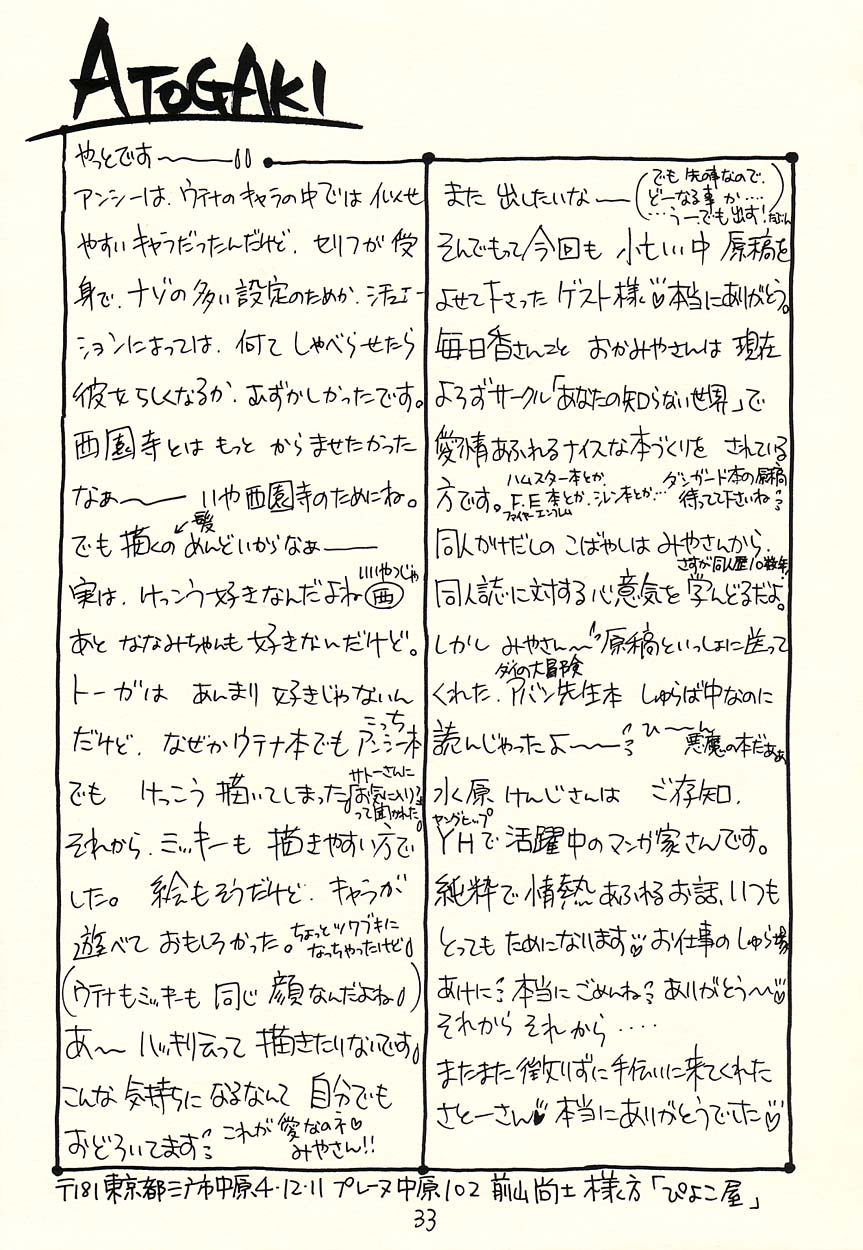 ATOGAKI
やっとです〜〜〜
アンシーは、ウテナのキャラの中では イメせ
やすいキャラだったんだけど、セリフが受
身で、ナゾの多い設定のためか、シチュエー
ションによっては、何て しゃべらせたら
彼女らしくなるか、むずかしかったです。
西園寺とは もっと からませたかった
なぁ〜〜 いや西園寺のためにね。
髪
でも 描くの めんどいからなぁ――
いいやつじゃ
実は、けっこう好きなんだよね 西
あと ななみちゃんも 好きなんだけど。
トーガは あんまり 好きじゃないん
だけど、なぜかウテナ本でも アンシー本
こっち
でも けっこう 描いてしまった
サトーさんに
「お気に入り?」
って聞かれた。
それから、ミッキーも 描きやすい方で
した。 絵もそうだけど、キャラが
遊べて おもしろかった。
ちょっとツワブキに
なっちゃったけど
(ウテナもミッキーも 同じ 顔なんだよね)
あ〜 ハッキリ云って 描きたりないです
こんな 気持ちに なるなんて 自分でも
おどろいてます これが 愛なのネ♡
みやさん!!
また 出したいな〜
(でも 先の事なので、
どーなる事 か‥‥
‥‥うーでも出す!たぶん)
そんでもって 今回も 小忙しい中 原稿を
よせて下さった ゲスト様♡本当にありがとう。
毎日香さんこと おかみやさんは 現在
よろずサークル「あなたの知らない世界」で
愛情あふれるナイスな本づくりを されている
方です。
ハムスター本とか、
F.E本とか、シレン本とか…
ファイヤーエンブレム
ダンガード本の原稿
待ってて下さいね
同人かけだしの こばやしは みやさんから、
さすが同人歴10数年!
同人誌に対する心意気を 学んどるだよ。
しかし みやさん〜 原稿といっしょに送って
ダイの大冒険
くれた、アバン先生本 しゅらば中なのに
読んじゃったよ〜〜 ひ〜〜ん
悪魔の本だぁぁ
水原 けんじさんは ご存知、
ヤングヒップ
YHで 活躍中の マンガ家さんです。
純粋で 情熱 あふれる お話、いつも
とっても ためになります♡ お仕事の しゅら場
あけに 本当に ごめんね ありがとう〜♡
それから それから ‥‥
またまた 懲りずに 手伝いに来てくれた
さとーさん♥ 本当にありがとうでした♡
〒181 東京都三鷹市中原4-12-11 プレーヌ中原102 前山尚士 様方「ぴよこ屋」
33